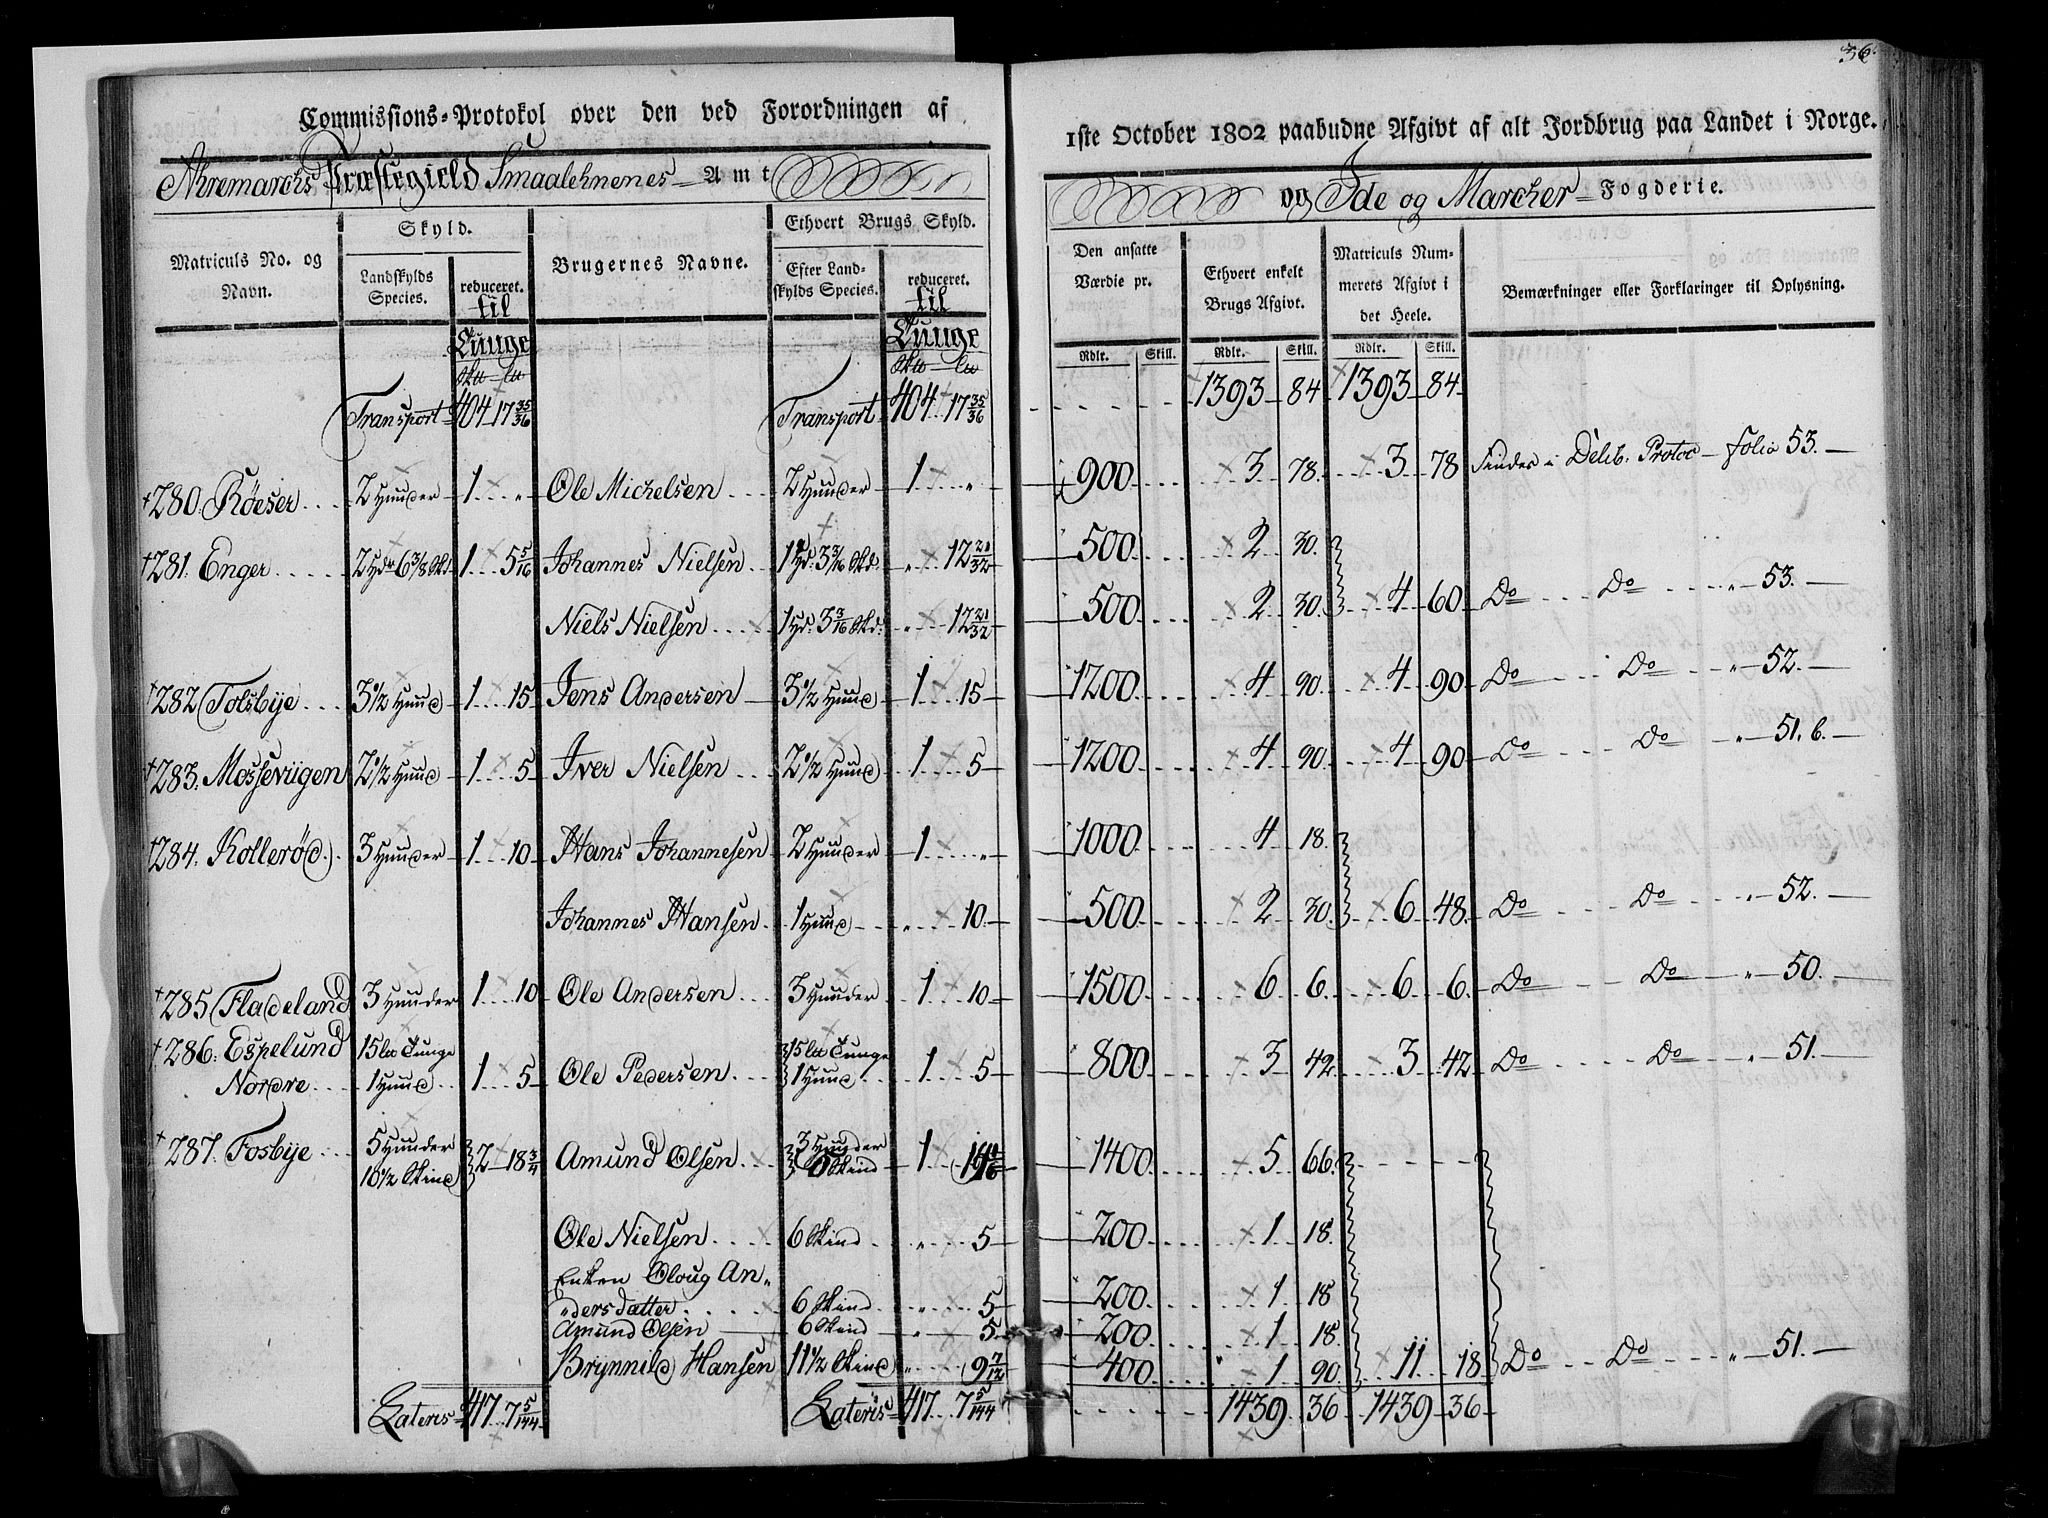 36.
Commissions-Protokol over den ved Forordningen af
1ste October 1802 paabudne Afgivt af alt Jordbrug paa Landet i Norge.
Ahremarchs Præstegield Smaalehnenes Amt
og Ide og Marcher Fogderie.
Matriculs No. og Navn. | Skyld. Landskylds Species. | reduceret. til Tunge | Brugernes Navne. | Ethvert Brugs Skyld. Efter Landskylds Species. | reduceret. til Tunge | Den ansatte Værdie pr. Rdlr. Skill. | Ethvert enkelt Brugs Afgivt. Rdlr. Skill. | Matriculs Nummerets Afgivt i det Heele. Rdlr. Skill. | Bemærkninger eller Forklaringer til Oplysning.
Transport 404 17 35/36 | Transport 404 17 35/36 | 1393 84 | 1393 84
†280. Röeser | 2 Huuder | 1 " | Ole Michelsen | 2 Huuder | 1 " | 900 | 3 78 | 3 78 | Findes i Delib. Protoc folio 53.
†281. Enger | 2 Hdr 6 3/8 Skd | 1 5 5/16 | Johannes Nielsen | 1 Hd. 3 3/16 Skd. | " 12 21/32 | 500 | 2 30
Niels Nielsen | 1 Hd. 3 3/16 Skd. | " 12 21/32 | 500 | 2 30 | 4 60 | Do Do " 53.
†282 Tolsbye | 3 1/2 Huud | 1 15 | Jens Andersen | 3 1/2 Huud | 1 15 | 1200 | 4 90 | 4 90 | Do Do " 52.
†283. Mossevügen | 2 1/2 Huud | 1 5 | Iver Nielsen | 2 1/2 Huud | 1 5 | 1200 | 4 90 | 4 90 | Do Do " 51. b.
†284. Kolleröd | 3 Huuder | 1 10 | Hans Johannesen | 2 Huuder | 1 " | 1000 | 4 18
Johannes Hansen | 1 Huud | " 10 | 500 | 2 30 | 6 48 | Do Do " 52.
†285 Fladeland | 3 Huuder | 1 10 | Ole Andersen | 3 Huuder | 1 10 | 1500 | 6 6 | 6 6 | Do Do " 50.
†286. Espelund Nordre | 15 lu Tunge 1 Huud | 1 5 | Ole Pedersen | 15 lu Tunge 1 Huud | 1 5 | 800 | 3 42 | 3 42 | Do Do " 51.
†287. Fosbye | 5 Huuder 10 1/2 Skind | 2 18 3/4 | Amund Olsen | 3 Huuder Skind | 1 | 1400 | 5 66
Ole Nielsen | 6 Skind | " 5 | 200 | 1 18
Enken Oloug An"
"dersdatter | 6 Skind | " 5 | 200 | 1 18
Amund Olsen | 6 Skind | " 5 | 200 | 1 18
Brynnild Hansen | 11 1/2 Skind | " 9 7/12 | 400 | 1 90 | 11 18 | Do Do " 51.
Lateris 417 7 5/144 | Lateris 417 7 5/144 | 1439 36 | 1439 36